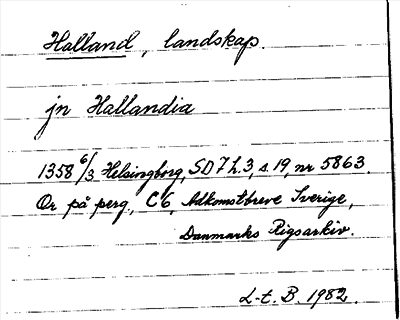 Halland, landskap.
jn Hallandia
1358 6/3 Helsingborg, SD 7 h.3, s. 19, nr 5863.
Or på perg., C6, Adkomstbreve Sverige,
Danmarks Rigsarkiv.
L-t. B. 1982.